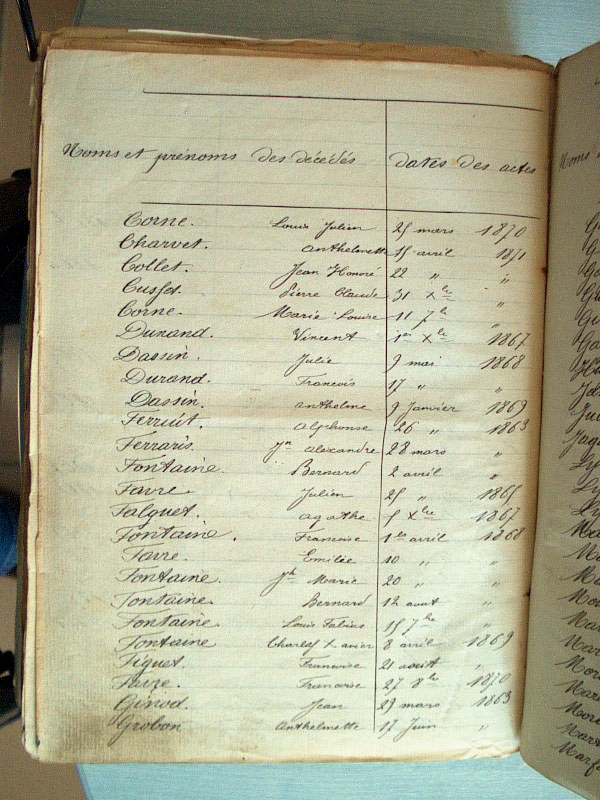 Noms et prénoms des décédés dates des actes
Corne. Louis Julien 25 mars 1870
Charvet. anthelmette 15 avril 1871
Collet. Jean Honoré 22 " "
Cusset. Pierre Claude 31 Xbre "
Corne. Marie Louise 11 7bre "
Dunand. Vincent 1er Xbre 1867
Dassin. Julie 9 mai 1868
Durand. Francois 17 " "
Dassin. anthelme 9 Janvier 1869
alphonse 26 " 1863
Ferraris. Jn alexandre 28 mars "
Fontaine. Bernard 2 avril "
Favre Julien 25 " 1865
Falquet. agathe 5 Xbre 1867
Fontaine. Francoise 1er avril 1868
Favre. Emilie 10 " "
Fontaine. Jh Marie 20 " "
Fontaine. Bernard 12 aout "
Fontaine Louis Fabius 15 7bre "
Fontaine Charles Xavier 8 avril 1869
Figuet. Francoise 21 août "
Francoise 27 8bre 1870
Ginod. Jean 29 mars 1863
Grobon anthelmette 17 Juin "
Noms